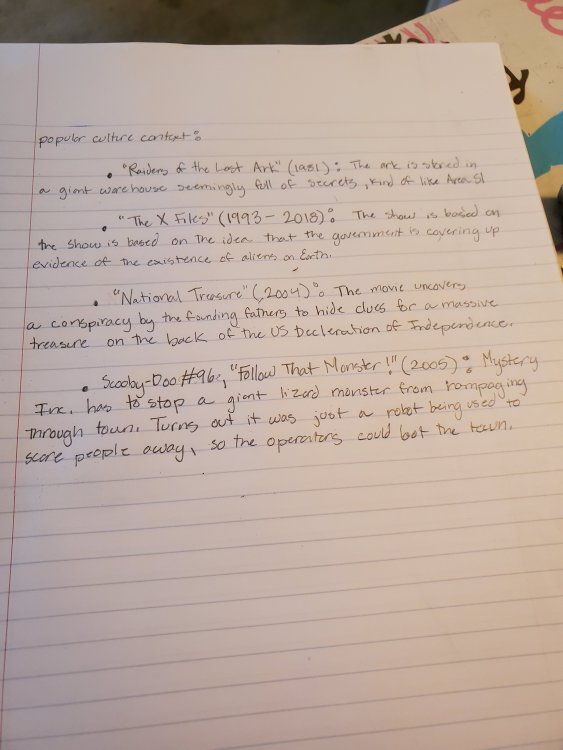 popular culture context:
• "Raiders of the Lost Ark" (1981): The ark is stored in
a giant warehouse seemingly full of secrets, kind of like Area 51
• "The X Files" (1993-2018): The show is based on
the show is based on the idea that the government is covering up
evidence of the existence of aliens on Earth.
• "National Treasure" (2004): The movie uncovers
a conspiracy by the founding fathers to hide clues for a massive
treasure on the back of the US Decleration of Independence.
• Scooby-Doo #96, "Follow That Monster!" (2005): Mystery
Inc. has to stop a giant lizard monster from rampaging
through town. Turns out it was just a robot being used to
scare people away, so the operators could loot the town.